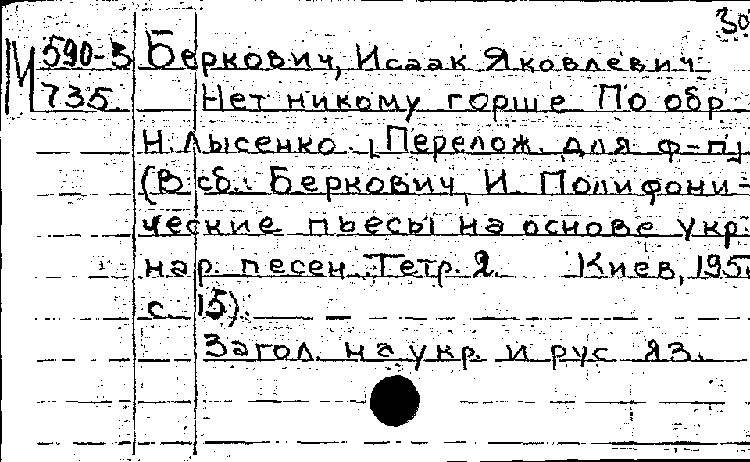 30
М 590-3 Беркович, Исаак Яковлевич
735 Нет никому горше По обр
Н. Лысенко. Перелож. для ф-п
(В сб.: Беркович, И Полифони-
ческие пьесы на основе укр.
нар. песен. Тетр. 2. Киев, 195
с. 15).
Загол. на укр. и рус яз.